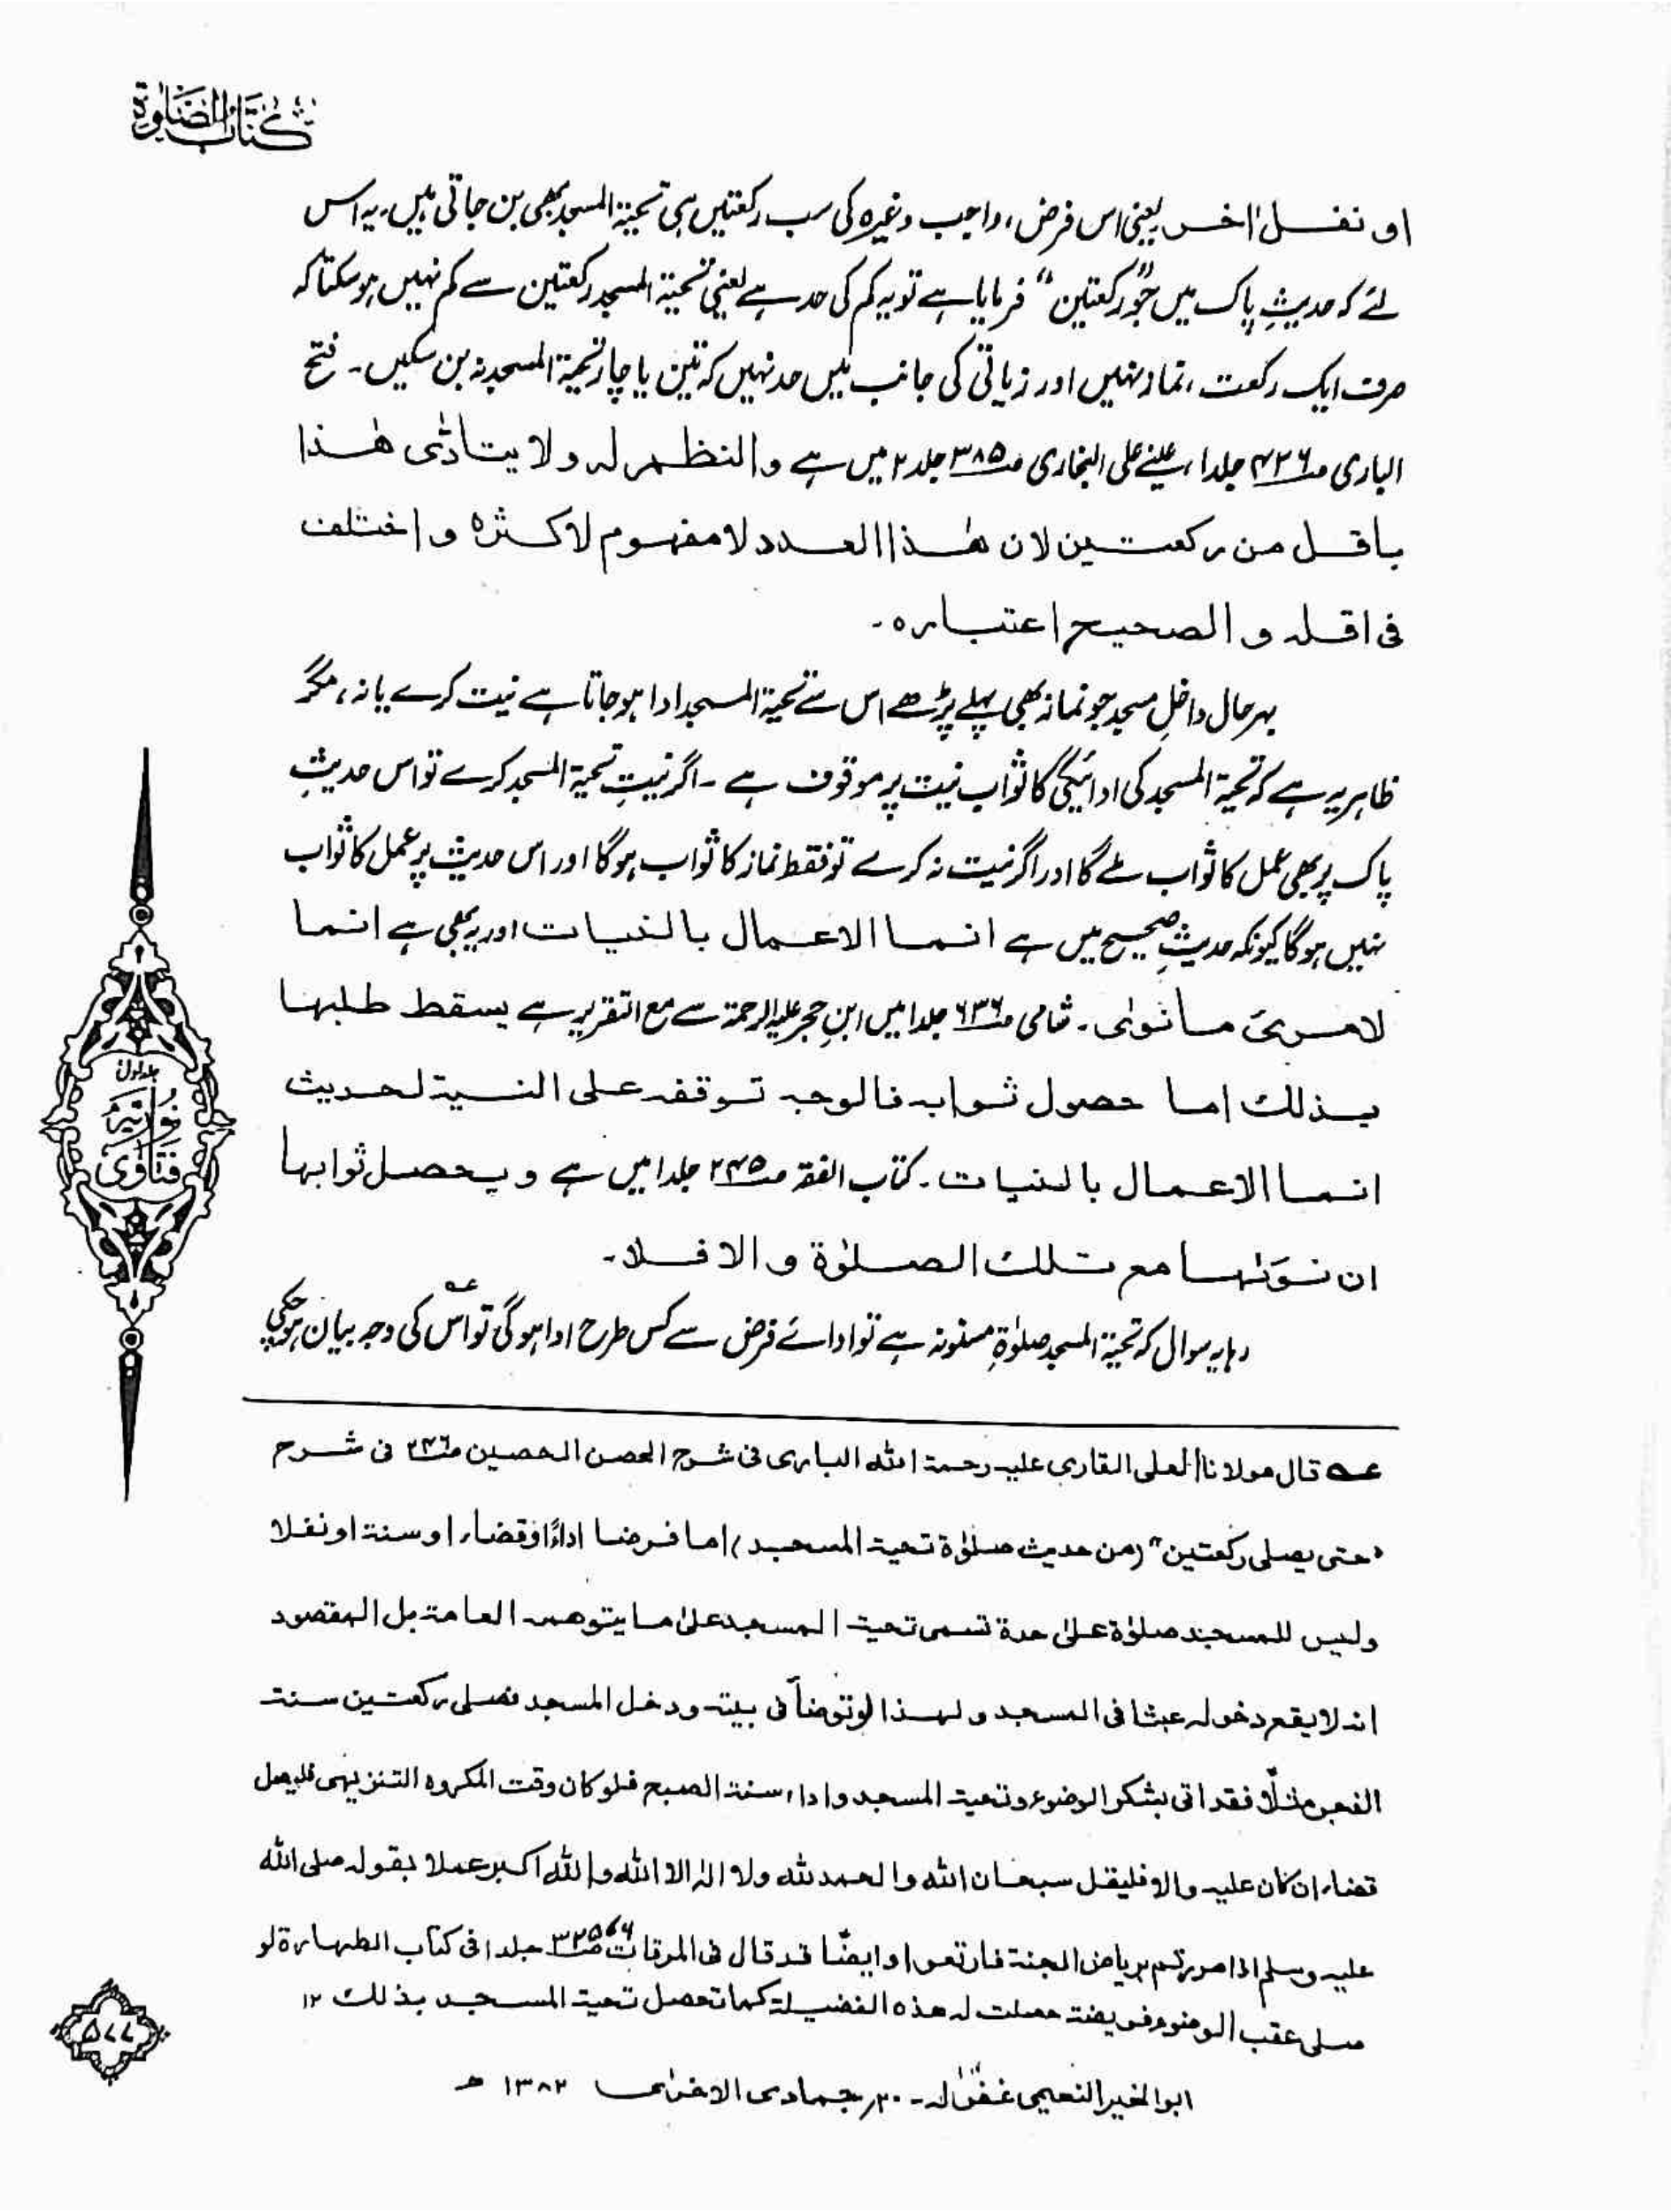 كتاب الصلوة
او نفل اٰخر یعنی اس فرض، واجب وغیرہ کی سب رکعتیں ہی تحیۃ المسجد بھی بن جاتی ہیں، یہ اس
لئے کہ حدیثِ پاک میں جو "رکعتین" فرمایا ہے تو یہ کم کی حد ہے یعنی تحیۃ المسجد رکعتین سے کم نہیں ہو سکتا کہ
صرف ایک رکعت، نماز نہیں اور زیاتی کی جانب میں حد نہیں کہ تین یا چار تحیۃ المسجد نہ بن سکیں۔ فتح
الباری ص۴۲۶ جلد ۱، عینی علی البخاری ص۳۸۵ جلد ۲ میں ہے والنظم لہ ولا یتادّٰی ھٰذا
باقل من رکعتین لان ھٰذا العدد لا مفھوم لاکثرہ واختلف
فی اقلہ والصحیح اعتبارہ۔
بہرحال داخلِ مسجد جو نماز بھی پہلے پڑھے اس سے تحیۃ المسجد ادا ہو جاتا ہے نیت کرے یا نہ، مگر
ظاہر یہ ہے کہ تحیۃ المسجد کی ادائیگی کا ثواب نیت پر موقوف ہے۔ اگر نیتِ تحیۃ المسجد کرے تو اس حدیثِ
پاک پر بھی عمل کا ثواب ملے گا اور اگر نیت نہ کرے تو فقط نماز کا ثواب ہوگا اور اس حدیث پر عمل کا ثواب
نہیں ہوگا کیونکہ حدیثِ صحیح میں ہے انما الاعمال بالنیات اور یہ بھی ہے انما
لامرئ مانوٰی۔ شامی ص۶۳۶ جلد ۱ میں ابنِ حجر علیہ الرحمۃ سے مع التقریر ہے یسقط طلبھا
بذٰلک اما حصول ثوابہ فالوجہ توقفہ علی النیۃ لحدیث
انما الاعمال بالنیات۔ کتاب الفقہ ص۲۴۵ جلد ۱ میں ہے ویحصل ثوابھا
ان نوٰھا مع تلک الصلوٰۃ والا فلا۔
رہا یہ سوال کہ تحیۃ المسجد صلوٰۃِ مسنونہ ہے تو ادائے فرض سے کس طرح ادا ہوگی تو اس عہ کی وجہ بیان ہو چکی
عہ قال مولانا العلی القاری علیہ رحمۃ اللہ الباری فی شرح الحصن الحصین ص۲۴۶ فی شرح
"حتی یصلی رکعتین" (من حدیث صلوٰۃ تحیۃ المسجد) اما فرضا اداءً او قضاء او سنۃ او نفلا
ولیس للمسجد صلوٰۃ علیٰ حدۃ تسمی تحیۃ المسجد علیٰ ما یتوھمہ العامۃ بل المقصود
انہ لا یقع دخولہ عبثا فی المسجد ولھذا لو توضأ فی بیتہ ودخل المسجد فصلی رکعتین سنۃ
الفجر مثلًا فقد اتی بشکر الوضوء وتحیۃ المسجد واداء سنۃ الصبح فلو کان وقت المکروہ التنزیھی فلیصل
قضاء ان کان علیہ والا فلیقل سبحان اللہ والحمد للہ ولا الٰہ الا اللہ واللہ اکبر عملا بقولہ صلی اللہ
علیہ وسلم اذا مررتم بریاض الجنۃ فارتعوا وایضًا قد قال فی المرقات جلد ۱ فی کتاب الطھارۃ لو
صلی عقب الوضوء فریضۃ حصلت لہ ھذہ الفضیلۃ کما تحصل تحیۃ المسجد بذلک ۱۲
ابوالخیر النعیمی غفرلہ۔ ۲۰؍ جمادی الاخرٰی ۱۳۸۲ ھ
جلد اول
نوریہ
فتاوٰی
۵۷۷